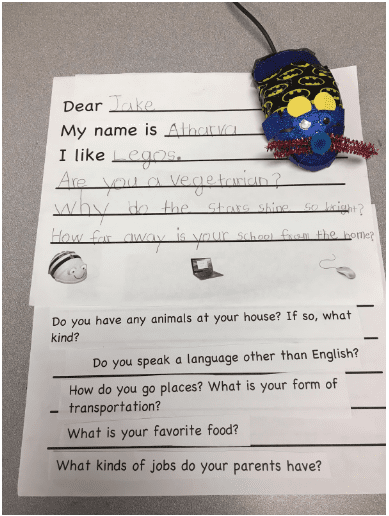 Dear Jake
My name is Atharva
I like Legos.
Are you a vegetarian?
Why do the stars shine so bright?
How far away is your school from the home?
Do you have any animals at your house? If so, what
kind?
Do you speak a language other than English?
How do you go places? What is your form of
transportation?
What is your favorite food?
What kinds of jobs do your parents have?